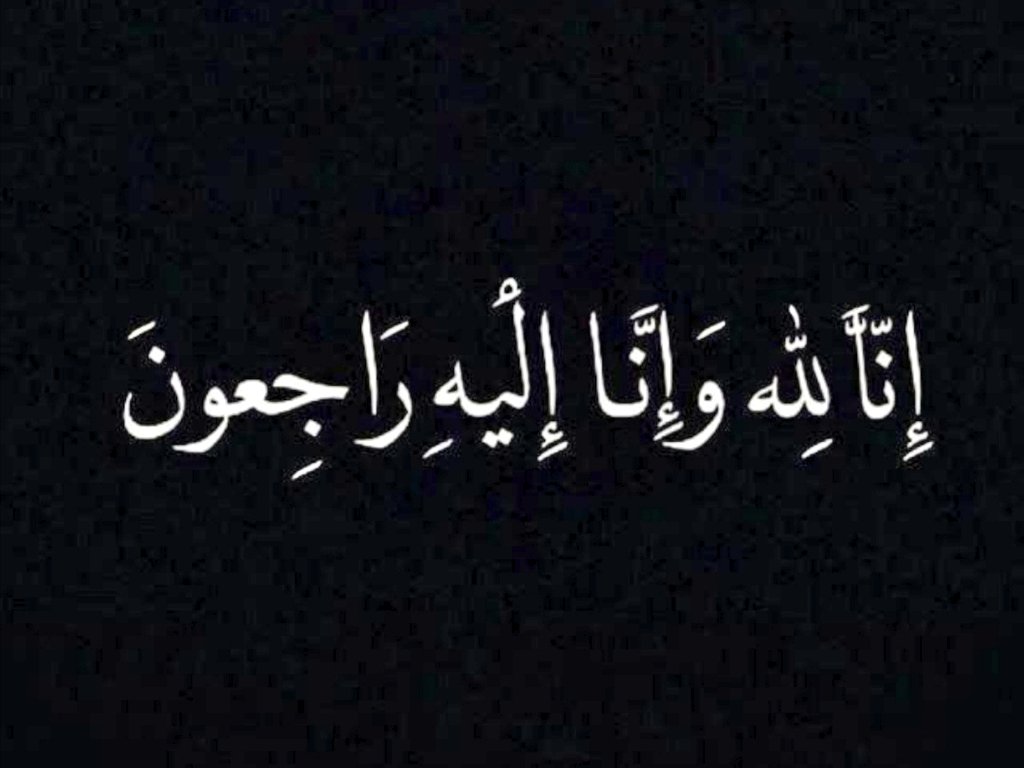 إِنَّاَّ لِلّٰه وَإِنَّا إِلْيهِ رَاجِعونَ